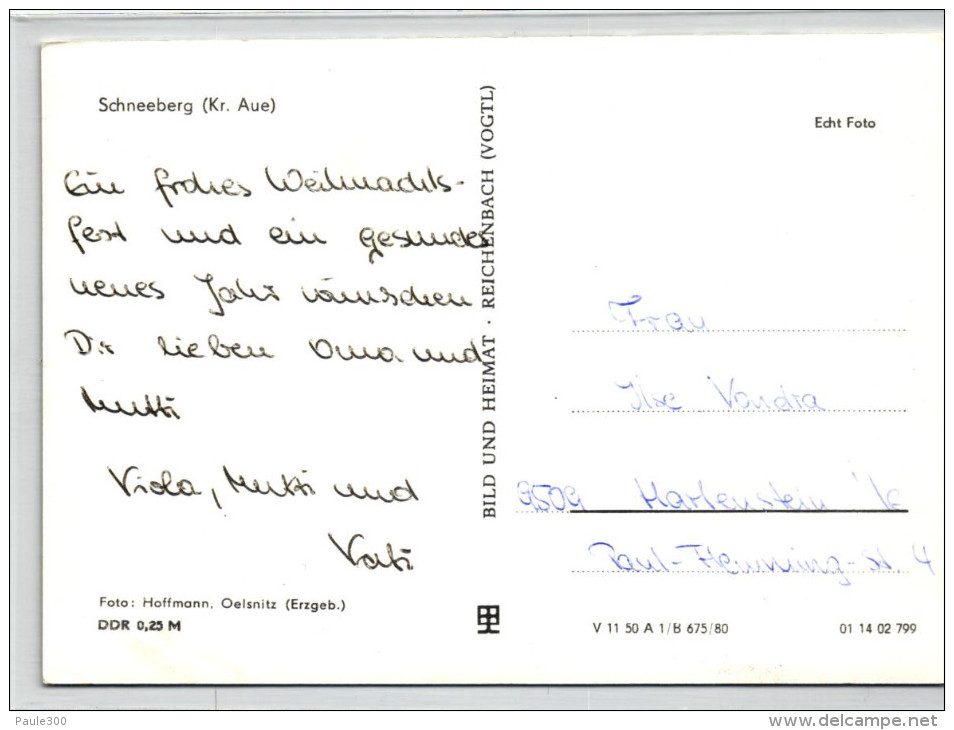 Schneeberg (Kr. Aue)
Ein frohes Weihnachts-
fest und ein gesundes
neues Jahr wünschen
Dir lieben Oma und
Mutti
Viola, Mutti und
Vati
Foto: Hoffmann, Oelsnitz (Erzgeb.)
DDR 0,25 M
BILD UND HEIMAT · REICHENBACH (VOGTL)
Echt Foto
Frau
Ilse Vandra
9509 Hartenstein
Paul-Flemming-St. 4
V 11 50 A 1/B 675/80
01 14 02 799
Paule300
http://www.delcampe.net